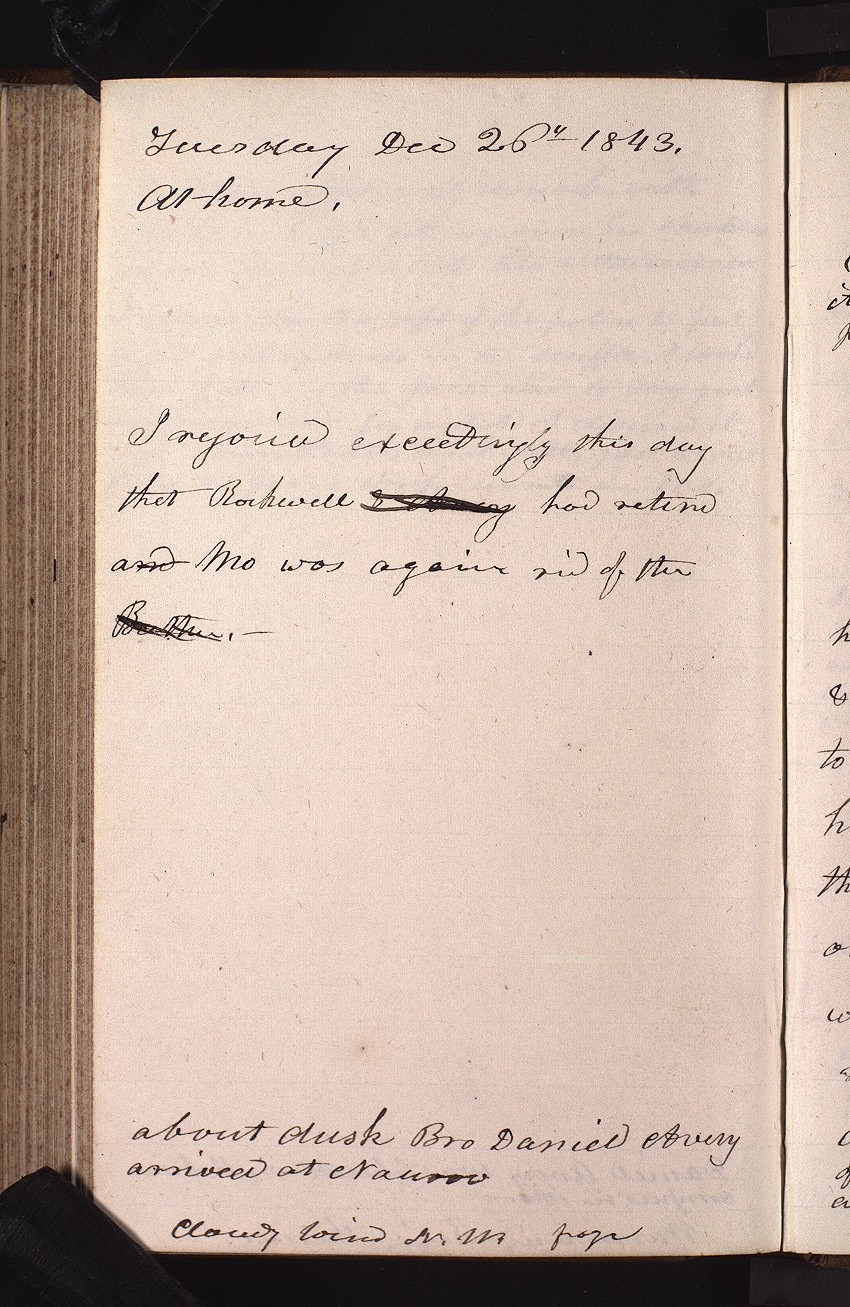 Tuesday Dec 26" 1843.
At home.
I rejoiced exceedingly this day
that Rockwell & Avery had retired
and Mo was again rid of the
about dusk Bro Daniel Avery
arrived at Nauvoo
Cloudy wind N. W. fogg